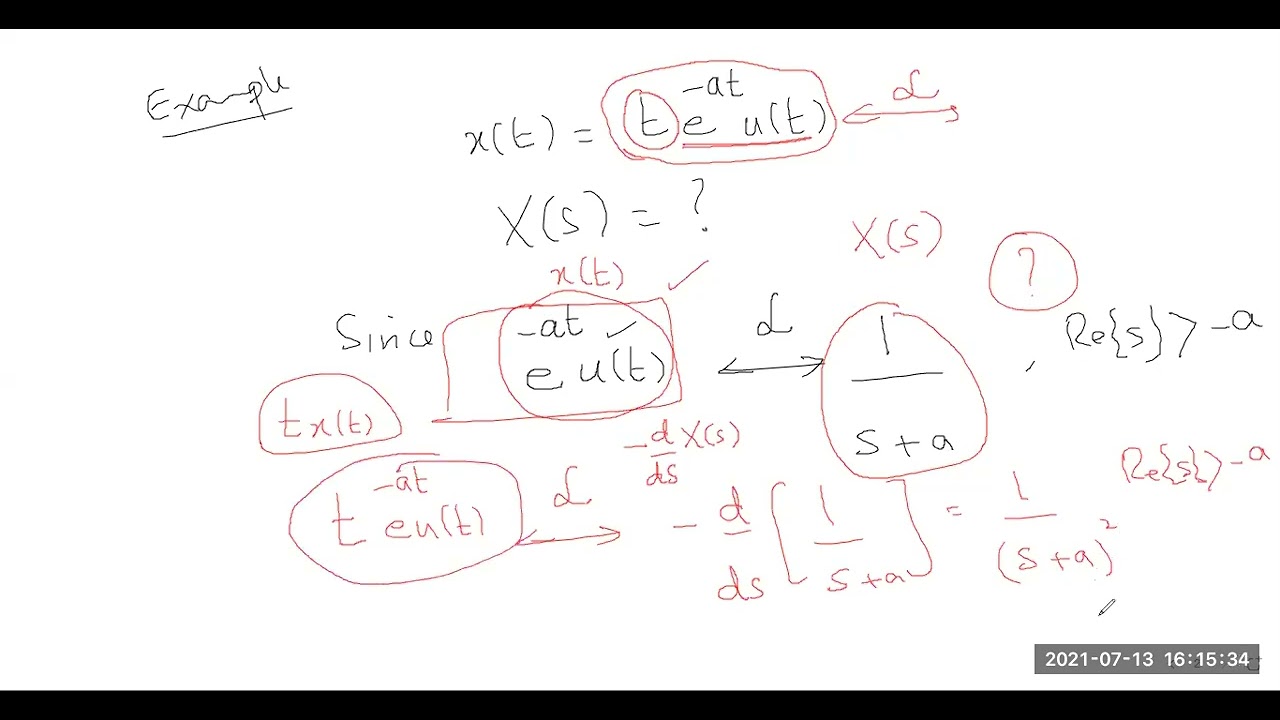 Example
x(t) = t e^{-at} u(t) ⟷ ℒ
X(s) = ?
x(t) ✓ X(s) ?
Since e^{-at} u(t) ✓ ⟷ ℒ 1/(s+a) , Re{s} > -a
t x(t) -d/ds X(s)
t e^{-at} u(t) ⟷ ℒ -d/ds [1/(s+a)] = 1/(s+a)^2 Re{s} > -a
2021-07-13 16:15:34